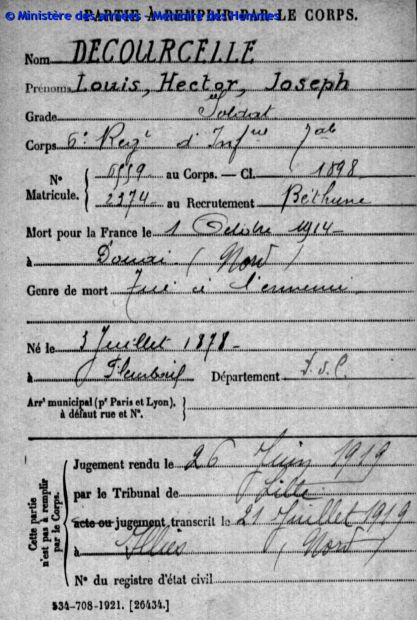 © Ministère des armées - Mémoire des Hommes
PARTIE À REMPLIR PAR LE CORPS.
Nom DECOURCELLE
Prénoms Louis, Hector, Joseph
Grade Soldat
Corps 6e Regt d'Infrie
N° Matricule. { 6559 au Corps. — Cl. 1898
2274 au Recrutement Béthune
Mort pour la France le 1 Octobre 1914
à Douai (Nord)
Genre de mort Tué à l'ennemi
Né le 3 Juillet 1878
à Fleurbaix Département P.d.C.
Arrt municipal (pr Paris et Lyon), à défaut rue et N°. }
Cette partie n'est pas à remplir par le Corps.
Jugement rendu le 26 Juin 1919
par le Tribunal de Lille
acte ou jugement transcrit le 21 Juillet 1919
à Illies (Nord)
N° du registre d'état civil
534-708-1921. [26434.]